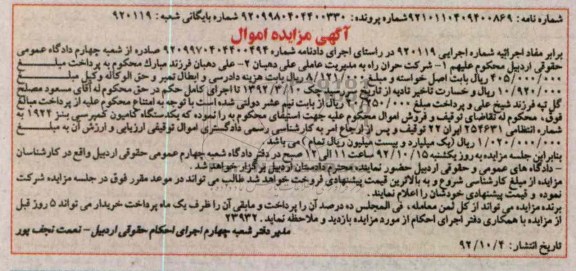 شماره نامه: ۹۲۱۰۱۱۰۴۰۹۴۰۰۸۶۹ شماره پرونده: ۹۲۰۹۹۸۰۴۰۲۴۰۰۳۳۰ شماره بایگانی شعبه: ۹۲۰۱۱۹
آگهی مزایده اموال
برابر مفاد اجرائیه شماره اجرایی ۹۲۰۱۱۹ در راستای اجرای دادنامه شماره ۹۲۰۹۹۷۰۴۰۴۴۰۰۴۹۴ صادره از شعبه چهارم دادگاه عمومی
حقوقی اردبیل محکوم علیهم ۱- شرکت حوران راه به مدیریت عاملی علی دهبان ۲- علی دهبان فرزند مبارك محکوم به پرداخت مبلغ
۴۰۵/۰۰۰/۰۰۰ ریال بابت اصل خواسته و مبلغ ۸/۱۲۱/۰۰۰ ریال بابت هزینه دادرسی و ابطال تمبر و حق الوکاله وکیل مبلغ
۱۰/۹۲۰/۰۰۰ ریال و خسارت تاخیر تادیه از تاریخ سررسید چک ۱۳۹۲/۳/۱۰ تا اجرای کامل حکم در حق محکوم له آقای مسعود مصلح
گل تپه فرزند شیخ علی و پرداخت مبلغ ۲۰/۲۵۰/۰۰۰ ریال از بابت نیم عشر دولتی شده است با توجه به امتناع محکوم علیه از پرداخت مبالغ
فوق، محکوم له تقاضای توقیف و فروش اموال محکوم علیه جهت استیفای محکوم به را نموده که یکدستگاه کامیون کمپرسی بنز ۱۹۲۲ به
شماره انتظامی ۲۵۴۶۳۱ ایران ۲۲ توقیف و پس از ارجاع امر به کارشناسی رسمی دادگستری اموال توقیفی ارزیابی و ارزش آن به مبلغ
۱/۰۲۰/۰۰۰/۰۰۰ ریال (یک میلیارد و بیست میلیون ریال تمام) می باشد.
بنابراین جلسه مزایده به روز یکشنبه ۹۲/۱۰/۱۵ ساعت ۱۱ الی ۱۲ صبح در دفتر دادگاه شعبه چهارم عمومی حقوقی اردبیل واقع در کارشناسان
– دادگاه های عمومی و حقوقی اردبیل حضور نماینده محترم دادستان اردبیل برگزار خواهد شد.
مزایده از مبلغ کارشناسی شروع و به بالاترین قیمت پیشنهادی فروخت خواهد شد طالب می تواند در موعد مقرر فوق در جلسه مزایده شرکت
نموده و قیمت پیشنهادی خودشان را اعلام نمایند.
برنده مزایده می تواند از کل ثمن معامله، فی المجلس ده درصد آن را پرداخت و مابقی آن را ظرف یک ماه پرداخت خریدار می تواند ۵ روز قبل
از مزایده با همکاری دفتر اجرای احکام از مورد مزایده بازدید و ملاحظه نماید. ۲۳۹۳۲
مدیر دفتر شعبه چهارم اجرای احکام حقوقی اردبیل – نعمت نجف پور
تاریخ انتشار: ۹۲/۱۰/۴